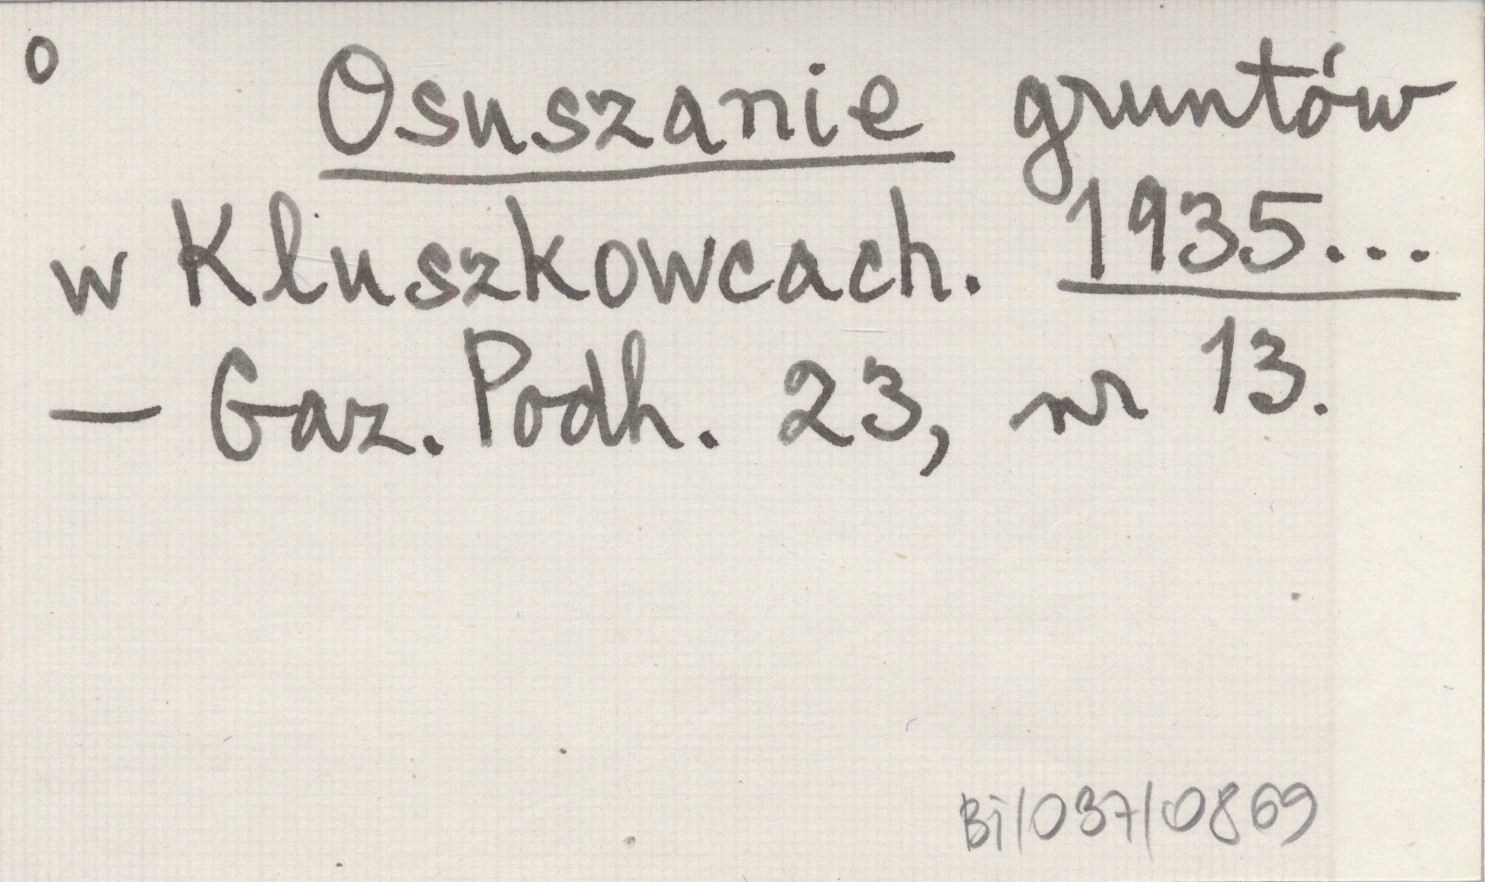 o Osuszanie gruntów
w Kluszkowcach. 1935...
— Gaz. Podh. 23, nr 13.
Bi/037/0869